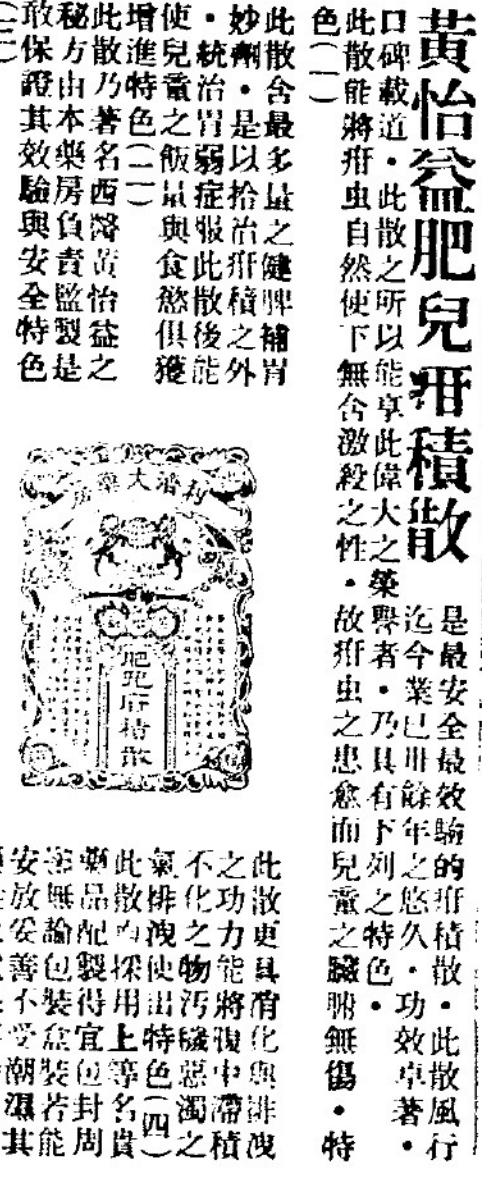 黃怡益肥兒疳積散
是最安全最效驗的疳積散・此散風行
迄今業已卅餘年之悠久・功效卓著・
口碑載道・此散之所以能享此偉大之榮譽者・乃具有下列之特色・
此散能將疳虫自然使下無含激殺之性・故疳虫之患愈而兒童之臟腑無傷・特
色(一)
此散含最多量之健脾補胃
妙劑・是以拾治疳積之外
・統治胃弱症服此散後能
使兒童之飯量與食慾俱獲
增進特色(二)
此散乃著名西醫黃怡益之
秘方由本藥房負責監製是
敢保證其效驗與安全特色
(三)
利濟大藥房
肥兒疳積散
此散更具消化與排洩
之功力能將腹中滯積
不化之物汚穢惡濁之
氣排洩使出特色(四)
此散採用上等名貴
藥品配製得宜包封周
密無論包裝盒裝若能
安放妥善不受潮濕其